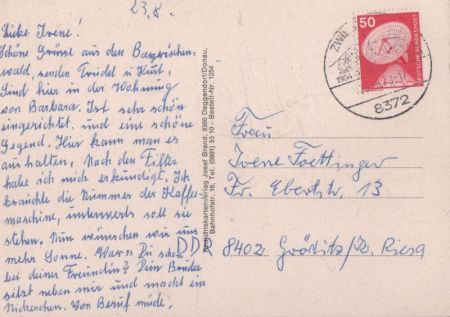 23.8.
Liebe Irene!
Schöne Grüsse aus dem Bayerischen-
wald, senden Trudel u Kurt,
Sind hier in der Wohnung
von Barbara. Ist sehr schön
eingerichtet und eine schöne
Gegend. Hier kann man es
aushalten, Nach den
habe ich mich erkundigt. Ich
brauchte die Nummer der Kaffee-
maschine, unterwerts soll sie
stehen. Nun wünschen wir uns
mehr Sonne. Warst Du schon
bei deiner Freundin? Dein Bruder
sitzt neben mir und macht ein
Nickerchen. Von Beruf müde.
Ansichtskartenverlag Josef Brand, 8360 Deggendorf/Donau,
Bahnhofstr. 16, Tel. (0991) 53 10 - Bestell-Nr. 1254
50
DEUTSCHE BUNDESPOST
8372
Frau
Irene
Fr. Ebertstr. 13
DDR 8402 Gröditz/Kr. Riesa